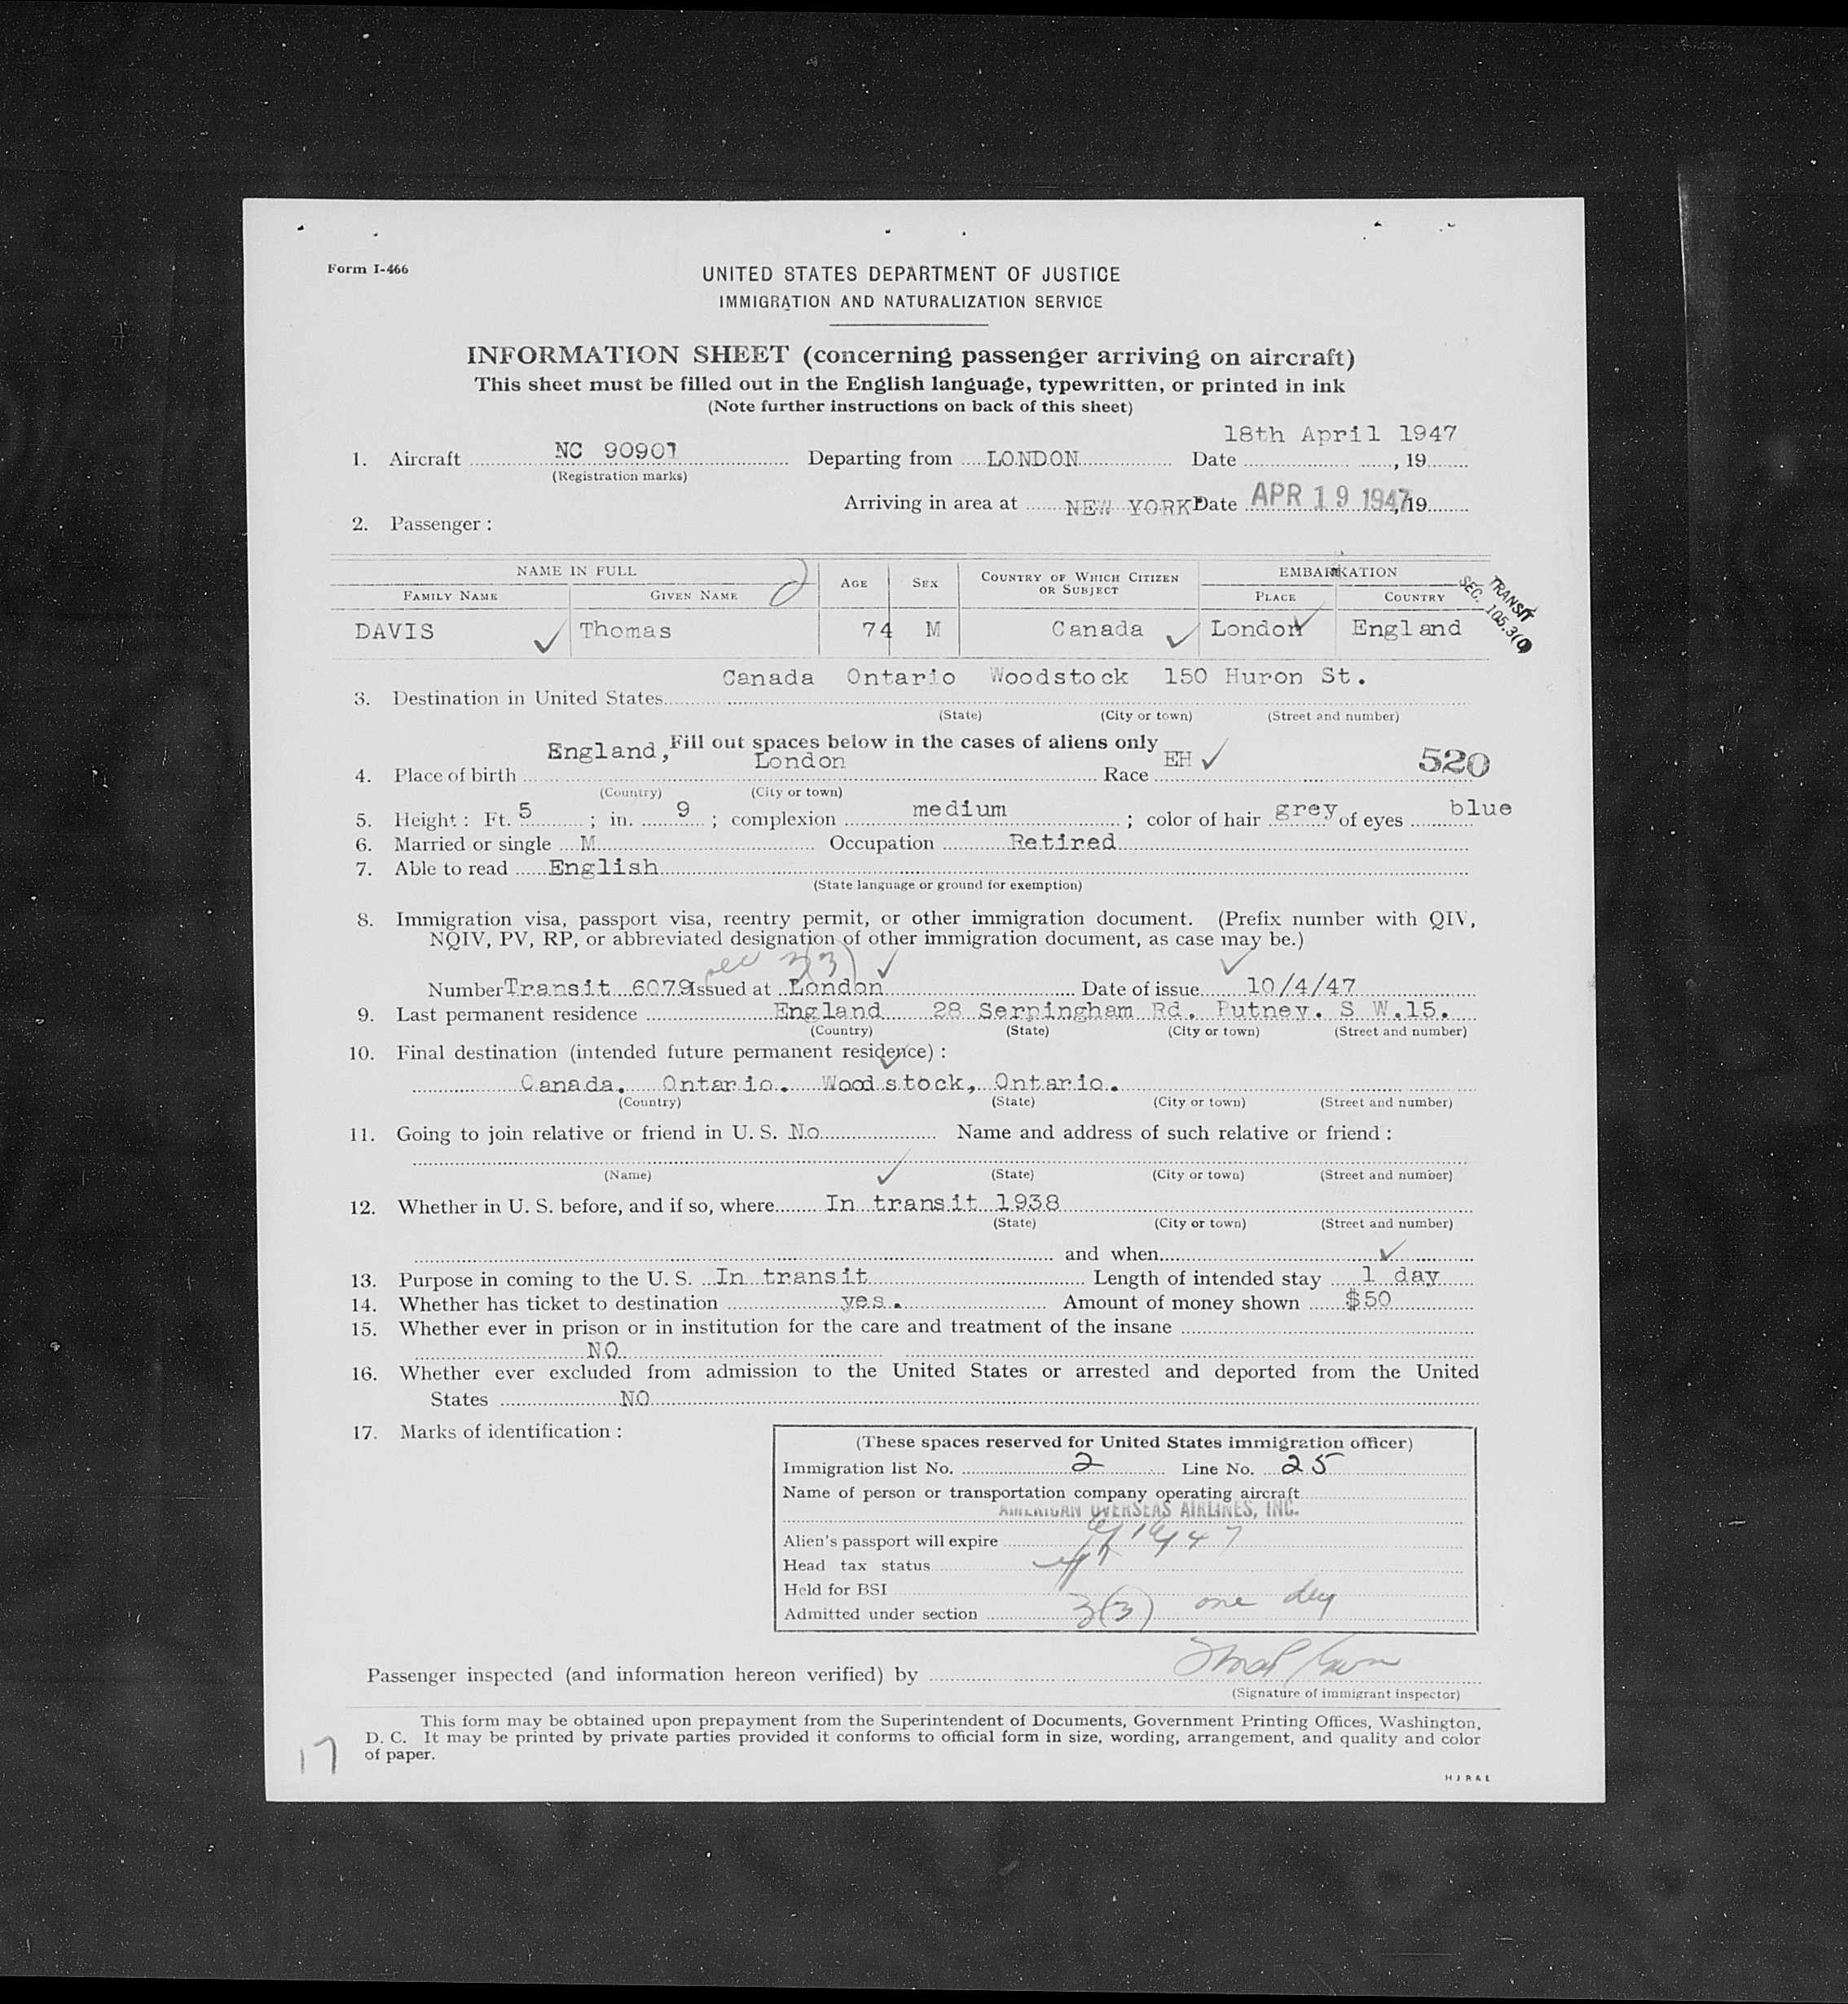 Form I-466
UNITED STATES DEPARTMENT OF JUSTICE
IMMIGRATION AND NATURALIZATION SERVICE
INFORMATION SHEET (concerning passenger arriving on aircraft)
This sheet must be filled out in the English language, typewritten, or printed in ink
(Note further instructions on back of this sheet)
18th April 1947
1. Aircraft NC 90901 Departing from LONDON Date , 19
(Registration marks)
Arriving in area at NEW YORK Date APR 19 1947, 19
2. Passenger:
NAME IN FULL AGE SEX COUNTRY OF WHICH CITIZEN OR SUBJECT EMBARKATION
FAMILY NAME GIVEN NAME PLACE COUNTRY
TRANSIT
SEC. 105.3(
DAVIS Thomas 74 M Canada London England
Canada Ontario Woodstock 150 Huron St.
3. Destination in United States
(State) (City or town) (Street and number)
Fill out spaces below in the cases of aliens only
4. Place of birth England, London Race EH 520
(Country) (City or town)
5. Height: Ft. 5 ; in. 9 ; complexion medium ; color of hair grey of eyes blue
6. Married or single M Occupation Retired
7. Able to read English
(State language or ground for exemption)
8. Immigration visa, passport visa, reentry permit, or other immigration document. (Prefix number with QIV,
NQIV, PV, RP, or abbreviated designation of other immigration document, as case may be.)
sec 3(3)
Number Transit 6079 Issued at London Date of issue 10/4/47
9. Last permanent residence England 28 Serpingham Rd. Putney. S W.15.
(Country) (State) (City or town) (Street and number)
10. Final destination (intended future permanent residence):
Canada. Ontario. Woodstock, Ontario.
(Country) (State) (City or town) (Street and number)
11. Going to join relative or friend in U. S. No Name and address of such relative or friend:
(Name) (State) (City or town) (Street and number)
12. Whether in U. S. before, and if so, where In transit 1938
(State) (City or town) (Street and number)
and when
13. Purpose in coming to the U. S. In transit Length of intended stay 1 day
14. Whether has ticket to destination yes. Amount of money shown $50
15. Whether ever in prison or in institution for the care and treatment of the insane
NO
16. Whether ever excluded from admission to the United States or arrested and deported from the United
States NO
17. Marks of identification:
(These spaces reserved for United States immigration officer)
Immigration list No. 2 Line No. 25
Name of person or transportation company operating aircraft
AMERICAN OVERSEAS AIRLINES, INC.
Alien's passport will expire
Head tax status
Held for BSI
Admitted under section 3(3) one day
Passenger inspected (and information hereon verified) by
(Signature of immigrant inspector)
This form may be obtained upon prepayment from the Superintendent of Documents, Government Printing Offices, Washington,
D. C. It may be printed by private parties provided it conforms to official form in size, wording, arrangement, and quality and color
of paper.
17
H J R & L